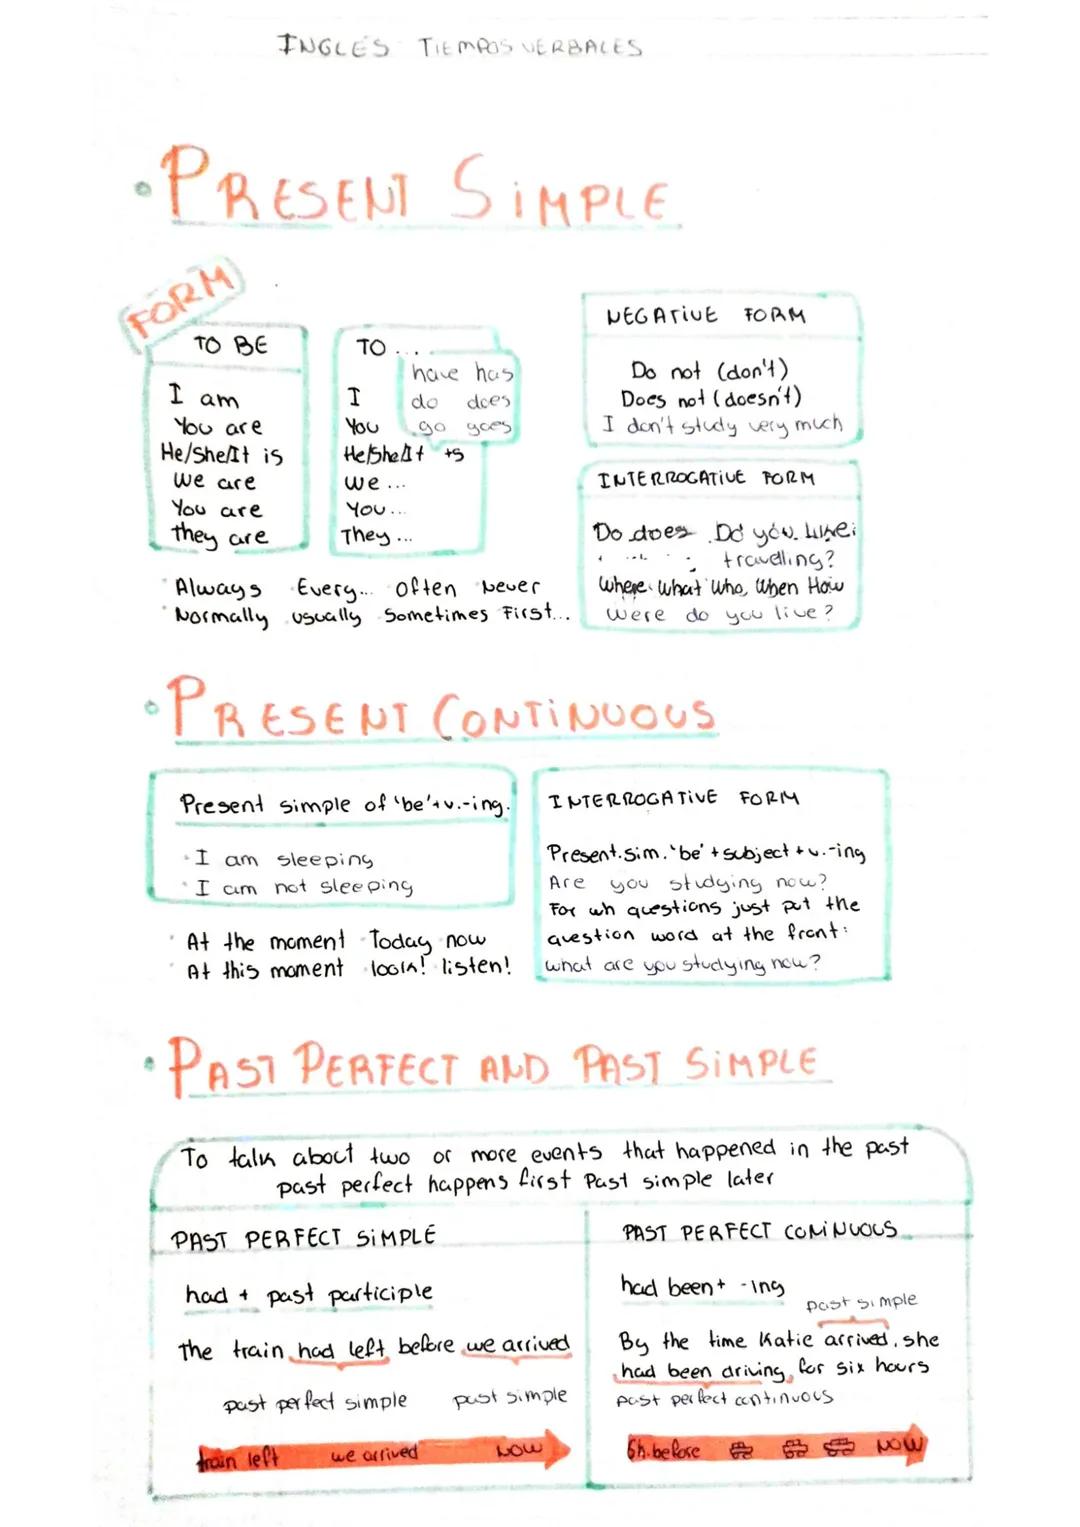 INGLÉS TIEMPOS VERBALES
• PRESENT SIMPLE
FORM
TO BE
I am
You are
He/She/It is
We are
You are
they are
TO ...
have has
do does
go goes
I
You
He/She/It +s
We ...
You...
They ...
NEGATIVE FORM
Do not (don't)
Does not (doesn't)
I don't study very much
INTERROGATIVE FORM
Do does Do you like
travelling?
Where What Who, When How
Were do you live?
Always Every... Often Never
Normally usually Sometimes First...
• PRESENT CONTINUOUS
Present simple of 'be'+v.-ing.
I am sleeping
I am not sleeping
At the moment Today now
At this moment look! listen!
INTERROGATIVE FORM
Present.sim.'be'+subject+v.-ing
Are you studying now?
For wh questions just put the
question word at the front:
what are you studying now?
• PAST PERFECT AND PAST SIMPLE
To talk about two or more events that happened in the past
past perfect happens first Past simple later
PAST PERFECT SIMPLE
had + past participle
the train had left before we arrived
past perfect simple past simple
train left we arrived NOW
PAST PERFECT CONINUOUS
had been+ -ing
past simple
By the time Katie arrived, she
had been driving for six hours
past perfect continuous
6h.before NOW